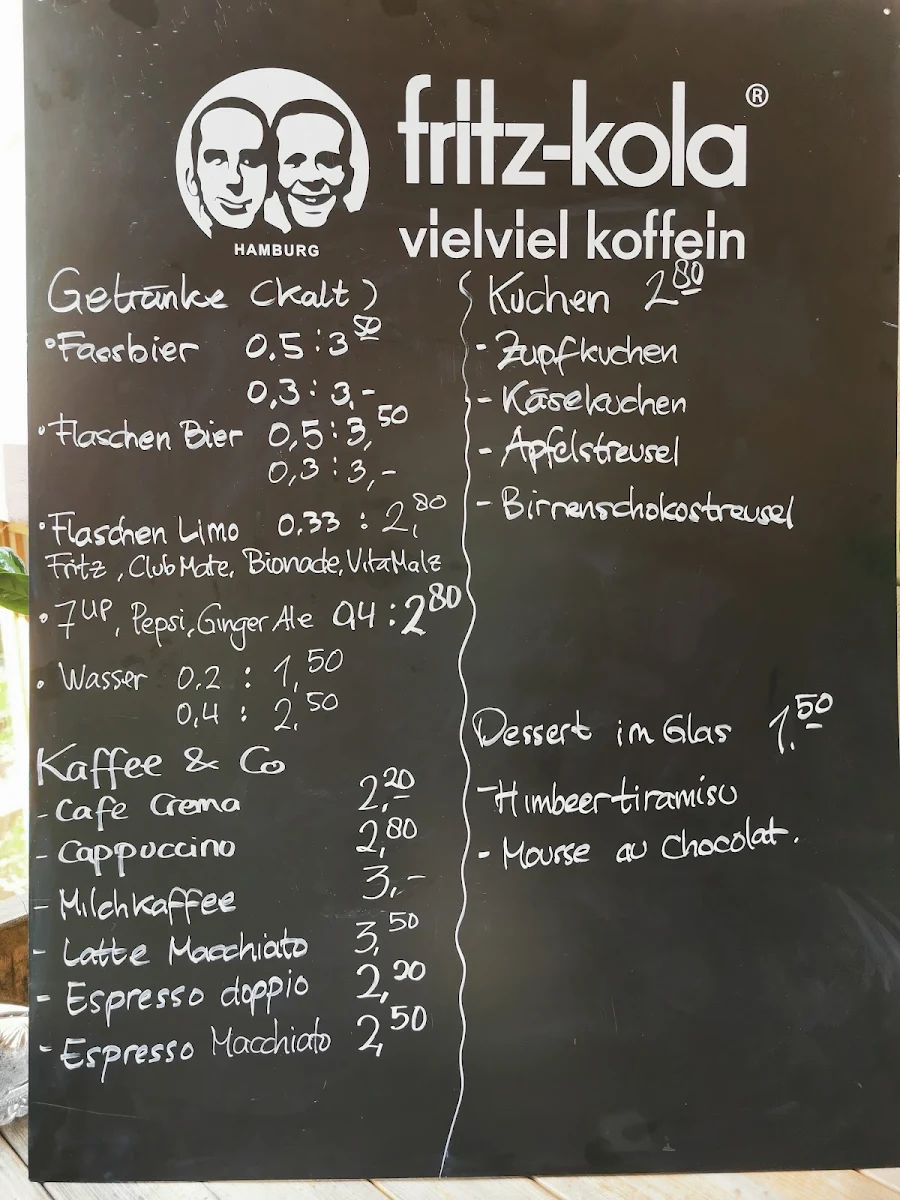 fritz-kola®
vielviel koffein
HAMBURG
Getränke (Kalt)
• Fassbier 0.5 : 3 50
0,3 : 3,-
• Flaschen Bier 0,5 : 3,50
0,3 : 3,-
• Flaschen Limo 0,33 : 2,80
Fritz, Club Mate, Bionade, VitaMalz
• 7UP, Pepsi, Ginger Ale 0,4 : 2 80
• Wasser 0.2 : 1,50
0,4 : 2,50
Kaffee & Co
- Cafe Crema 2,20
- Cappuccino 2,80
- Milchkaffee 3,-
- Latte Macchiato 3,50
- Espresso doppio 2,20
- Espresso Macchiato 2,50
Kuchen 2 80
- Zupfkuchen
- Käsekuchen
- Apfelstreusel
- Birnenschokostreusel
Dessert im Glas 1.50
- Himbeertiramisu
- Mousse au Chocolat.